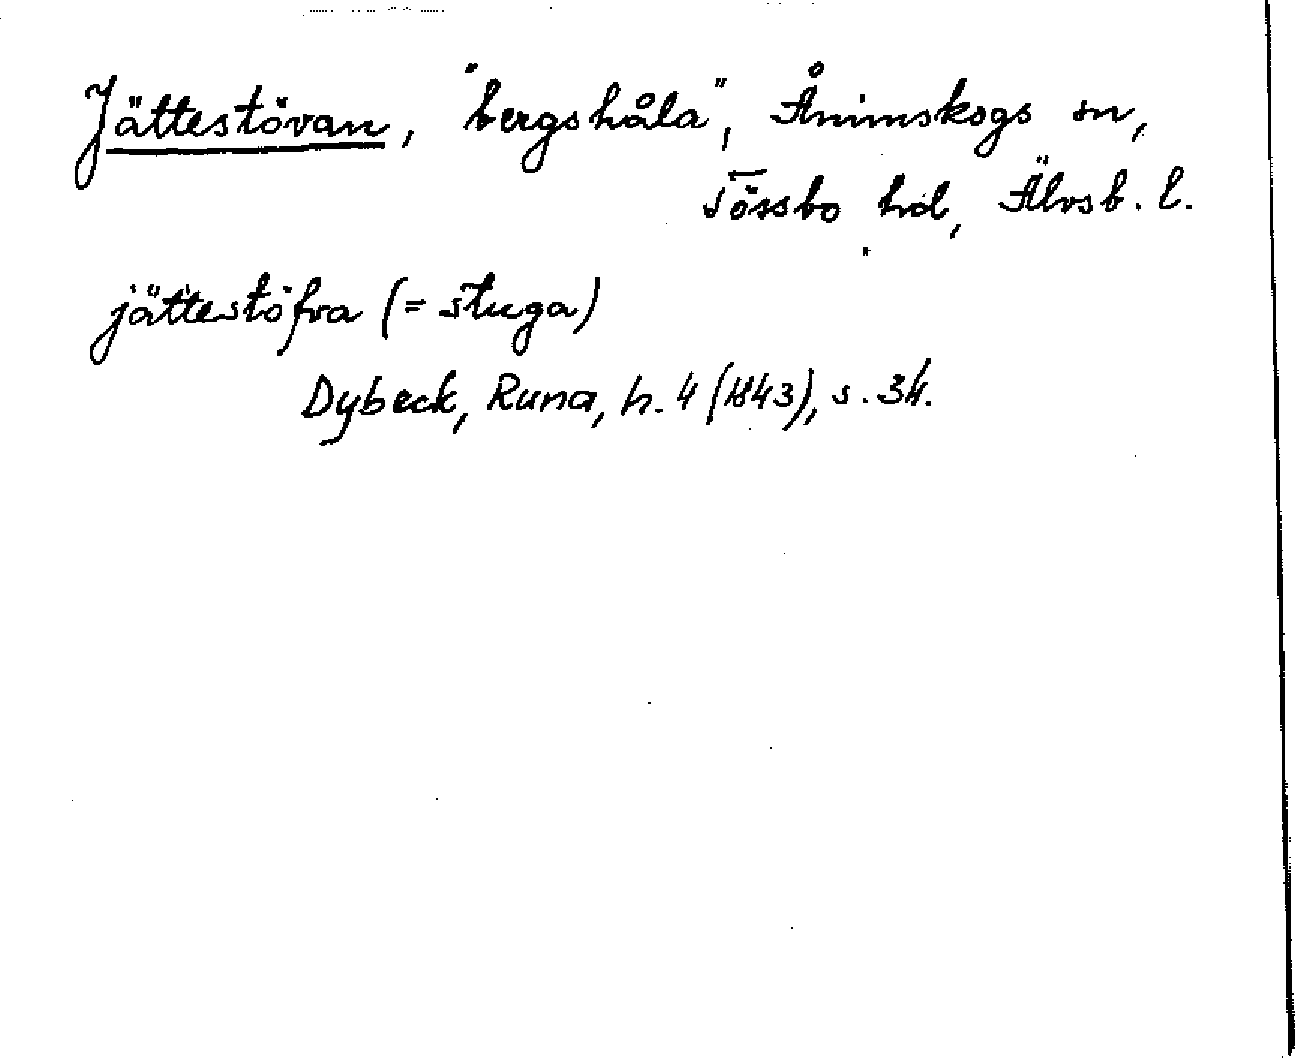 Jättestövan, "bergshåla", Ånimskogs sn,
Tössbo hd, Älvsb. l.
jättestöfva (= stuga)
Dybeck, Runa, h. 4 (1843), s. 34.